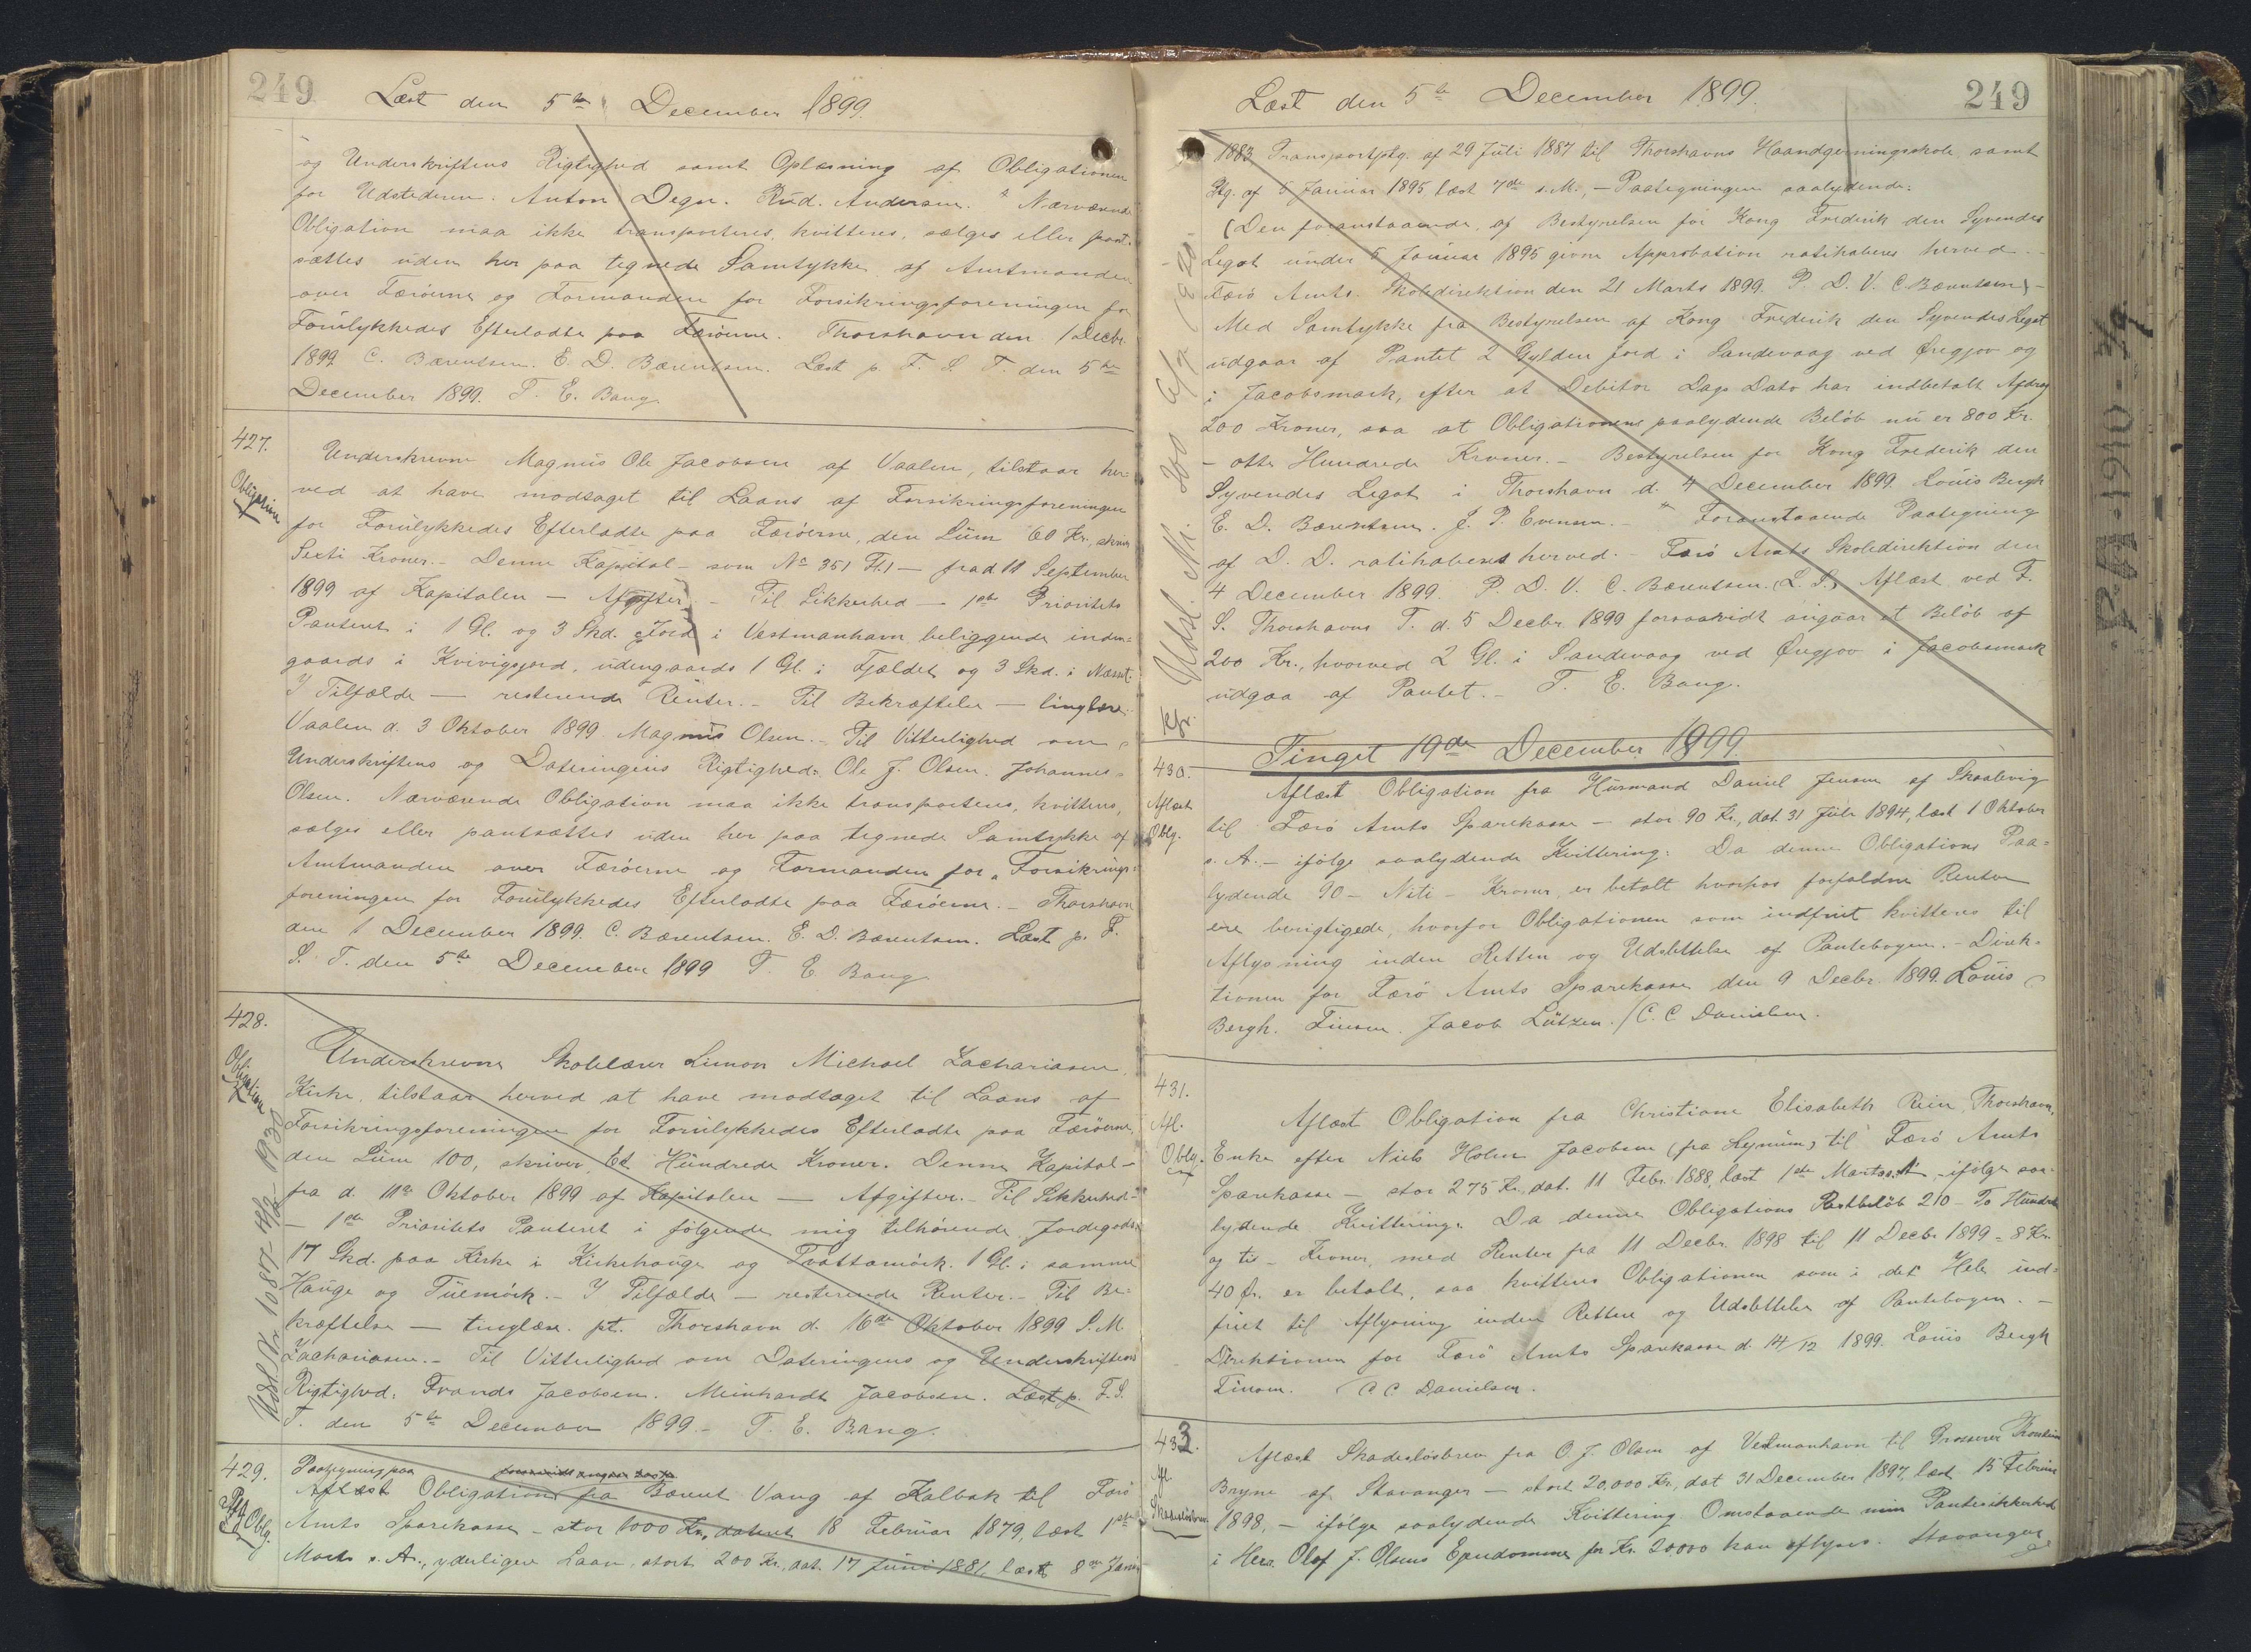 249
Læst den 5te December 1899.
og Underskriftens Rigtighed samt Oplæsning af Obligationen
for Udstederen. Anton Degn. Rud. Andersen. Nærværende
Obligation maa ikke transporteres, kvitteres, sælges eller pant-
sættes uden her paa tegnede Samtykke af Amtmanden
over Færöerne og Formanden for Forsikringsforeningen for
Forulykkedes Efterladte paa Færöerne. Thorshavn den 1 Decbr.
1899 C. Bærentsen. E. D. Bærentsen. Læst p. F. S. T. den 5te
December 1899. T. E. Bang.
427.
Obligation
Underskrevne Magnus Ole Jacobsen af Vaalen, tilstaar her-
ved at have modtaget til Laans af Forsikringsforeningen
for Forulykkedes Efterladte paa Færöerne, den Sum 60 Kr. skriver
Sexti Kroner. - Denne Kapital - som No 351 Fl. 1 - fra d 11 September
1899 af Kapitalen - Afgifter. - Til Sikkerhed - 1ste Prioritets
Panteret i 1 Gl. og 3 Skd. Jord i Vestmanhavn beliggende inden-
gaards i Kvivigsjord, udengaards 1 Gl. i Fjældet og 3 Skd. i Næsset.
I Tilfælde - resterende Renter. - Til Bekræftelse - tinglæse.
Vaalen d. 3 Oktober 1899. Magnus Olsen. - Til Vitterlighed om
Underskriftens og Dateringens Rigtighed. Ole J. Olsen. Johannes
Olsen. Nærværende Obligation maa ikke transporteres, kvitteres,
sælges eller pantsættes uden her paa tegnede Samtykke af
Amtmanden over Færöerne og Formanden for "Forsikrings-
foreningen for Forulykkedes Efterladte paa Færöerne. - Thorshavn
den 1 December 1899. C. Bærentsen. E. D. Bærentsen. Læst p. F.
S. T. den 5te December 1899 T. E. Bang
428.
Obligation
Udsl. Nr. 1087 - 1930
Underskrevne Skolelærer Simon Michael Zachariasen,
Kirke, tilstaar herved at have modtaget til Laans af
Forsikringsforeningen for Forulykkedes Efterladte paa Færöerne,
den Sum 100, skriver Et Hundrede Kroner. Denne Kapital -
fra d. 11te Oktober 1899 af Kapitalen - Afgifter. - Til Sikkerhed -
- 1ste Prioritets Panteret i følgende mig tilhørende Jordegods:
17 Skd. paa Kirke i Kirkehauge og Tvattamörk. 1 Gl. i samme
Hauge og Tuemörk. - I Tilfælde - resterende Renter. - Til Be-
kræftelse - tinglæse. pt. Thorshavn d. 16de Oktober 1899 S. M.
Zachariasen. - Til Vitterlighed om Dateringens og Underskriftens
Rigtighed: Frands Jacobsen. Meinhardt Jacobsen. Læst p. F. S.
T. den 5te December 1899. - T. E. Bang.
429.
Ptg Oblg.
Paategning paa
forsaavidt angaar
Aflæst Obligation fra Barent Vang af Kalbak til Færö
Amts Sparekasse - stor 1000 Kr, dateret 18 Februar 1879, læst 1ste
Marts s. A., yderligere Laan, stort 200 Kr., dat. 17 Juni 1881, læst 8de Januar
249
Læst den 5te December 1899.
Udsl. Nr. 200
Kfr.
1883 Transportptg. af 29 Juli 1887 til Thorshavns Haandgerningsskole, samt
Ptg. af 5 Januar 1895 læst 7de s. M., - Paategningen saalydende:
(Den foranstaaende, af Bestyrelsen for Kong Frederik den Syvendes
Legat under 5 Januar 1895 givne Approbation ratihaberes herved. -
Færö Amts Skoledirektion den 21 Marts 1899. P. D. V. C. Bærentsen) -
Med Samtykke fra Bestyrelsen af Kong Frederik den Syvendes Legat
udgaar af Pantet 2 Gylden Jord i Sandevaag ved Øregjov og
i Jacobsmark, efter at Debitor Dags Dato har indbetalt Afdrag
200 Kroner, saa at Obligationens paalydende Beløb nu er 800 Kr.
- otte Hundrede Kroner. - Bestyrelsen for Kong Frederik den
Syvendes Legat i Thorshavn d. 4 December 1899. Louis Bergh
E. D. Bærentsen. J. P. Evensen. - Foranstaaende Paategning
af D. D. ratihaberes herved. - Færö Amts Skoledirektion den
4 December 1899. P. D. V. C. Bærentsen. (L. S.) Aflæst ved F.
S. Thorshavns T. d. 5 Decbr. 1899 forsaavidt angaar et Beløb af
200 Kr., hvorved 2 Gl. i Sandevaag ved Øregjov i Jacobsmark
udgaa af Pantet. - T. E. Bang.
Tinget 19de December 1899
430.
Aflæst
Oblg.
Aflæst Obligation fra Husmand Daniel Jensen af Skaalevig
til Færö Amts Sparekasse - stor 90 Kr, dat 31 Juli 1894, læst 1 Oktober
s. A. - ifølge saalydende Kvittering: Da denne Obligations Paa-
lydende 90 - Niti - Kroner er betalt hvorhos forfaldne Renter
ere berigtigede, hvorfor Obligationen som indfriet kvitteres til
Aflysning inden Retten og Udslettelse af Pantebogen. - Direk-
tionen for Færö Amts Sparekasse den 9 Decbr. 1899. Louis
Bergh. Finsen. Jacob Lützen. / C. C. Danielsen.
431.
Afl.
Oblg.
Aflæst Obligation fra Christiane Elisabeth Rein, Thorshavn,
Enke efter Niels Holm Jacobsen (fra Hyminn) til Færö Amts
Sparekasse - stor 275 Kr, dat. 11 Febr. 1888, læst 1ste Marts s. A., ifølge saa-
lydende Kvittering: Da denne Obligations Restbeløb 210 - To Hundrede
og ti - Kroner, med Renter fra 11 Decbr. 1898 til 11 Decbr. 1899 = 8 Kr.
40 Ø. er betalt, saa kvitteres Obligationen som i det Hele ind-
friet til Aflysning inden Retten og Udslettelse af Pantebogen. -
Direktionen for Færö Amts Sparekasse d. 14/12 1899. Louis Bergh
Finsen. / C. C. Danielsen.
433.
Afl.
Skadesløsbrev
Aflæst Skadesløsbrev fra O. J. Olsen af Vestmanhavn til Grosserer Thorstein
Bryne af Stavanger - stort 20,000 Kr, dat 31 December 1897, læst 15 Februar
1898, - ifølge saalydende Kvittering. Omstaaende min Pantesikkerhed
i Herr Olof J. Olsens Ejendomme for Kr. 20,000 kan aflyses. Stavanger